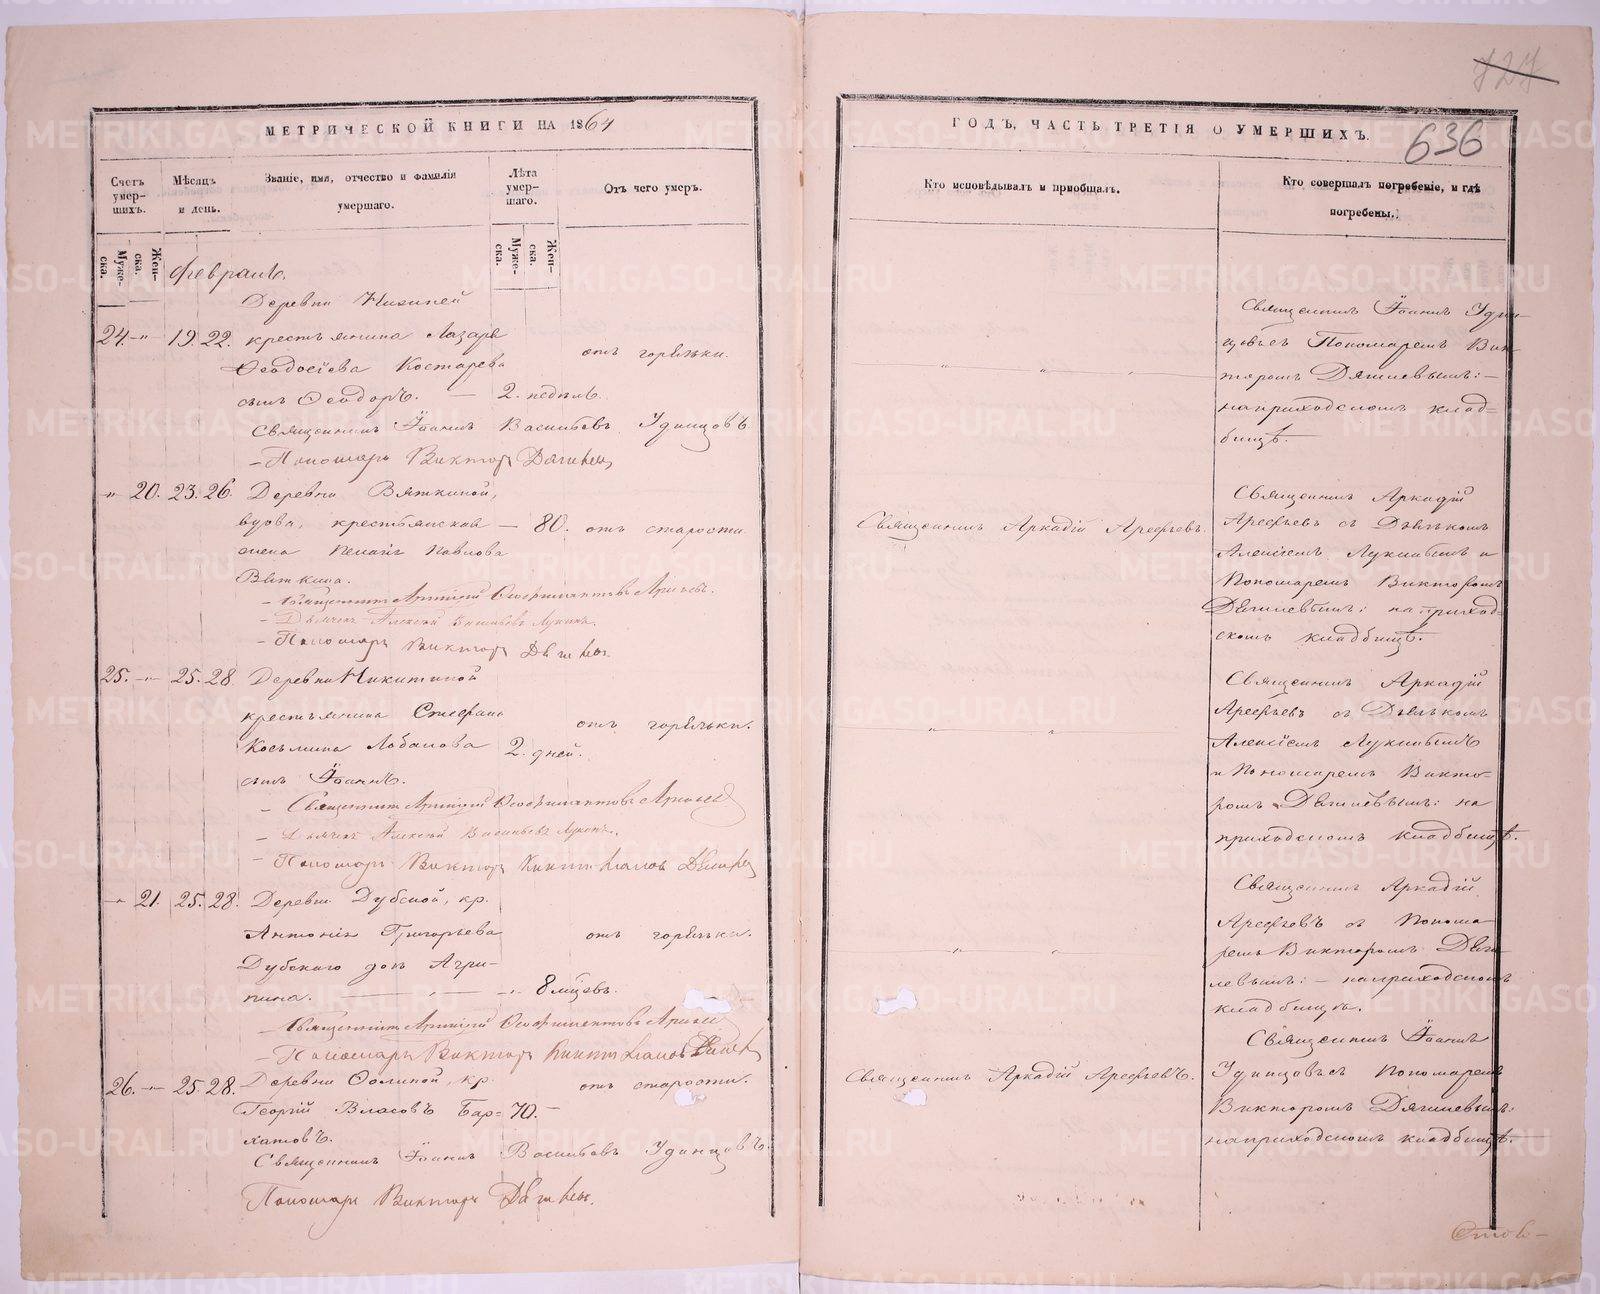 127
636
МЕТРИЧЕСКОЙ КНИГИ НА 1864
ГОДЪ, ЧАСТЬ ТРЕТІЯ О УМЕРШИХЪ.
Счетъ умер-
шихъ.
Мѣсяцъ
и день.
Званіе, имя, отчество и фамилія
умершаго.
Лѣта
умер-
шаго.
Отъ чего умеръ.
Кто исповѣдывалъ и пріобщалъ.
Кто совершалъ погребеніе, и гдѣ
погребены.
Муже-
ска.
Жен-
ска.
Муже-
ска.
Жен-
ска.
Февраль.
Деревни
24. -„- 19. 22. крестьянина Лазаря
Ѳеодосіева Костарева
сынъ Ѳеодоръ. — 2. недѣль.
отъ горячки.
Священникъ Іоаннъ Васильевъ Удинцовъ
- Пономарь Викторъ Дягилевъ
Священникъ Іоаннъ Удин-
цовъ съ Пономаремъ Вик-
торомъ Дягилевымъ: —
на приходскомъ клад-
бищѣ. —
-„- 20. 23. 26. Деревни Вяткиной,
вдова, крестьянская — 80. отъ старости
жена Пелагія Павлова
Вяткина.
- Священникъ Аркадій Арефьевъ.
- Дьячекъ Алексѣй Васильевъ Лукинъ.
- Пономарь Викторъ Дягилевъ.
Священникъ Аркадій Арефьевъ.
Священникъ Аркадій
Арефьевъ съ Дьячкомъ
Алексіемъ Лукинымъ и
Пономаремъ Викторомъ
Дягилевымъ: на приход-
скомъ кладбищѣ.
25. -„- 25. 28. Деревни Никитиной
крестьянина Стефана
Козьмина Лобанова 2. дней.
сынъ Іоаннъ.
отъ горячки.
- Священникъ Аркадій Арефьевъ
- Дьячекъ Алексѣй Васильевъ Лукинъ.
- Пономарь Викторъ Дягилевъ
Священникъ Аркадій
Арефьевъ съ Дьячкомъ
Алексіемъ Лукинымъ
и Пономаремъ Викто-
ромъ Дягилевымъ: на
приходскомъ кладбищѣ.
-„- 21. 25. 28. Деревни Дубской, кр.
Антонія Григорьева
Дубскаго дочь Агри-
пина. — -„- 8 мцевъ.
отъ горячки.
- Священникъ Аркадій Арефьевъ
- Пономарь Викторъ Дягилевъ
Священникъ Аркадій
Арефьевъ съ Понома-
ремъ Викторомъ Дяги-
левымъ: — на приходскомъ
кладбищѣ.
26. -„- 25. 28. Деревни кр.
Георгій Власовъ Бар= 70. —
хатовъ.
отъ старости.
Священникъ Іоаннъ Васильевъ Удинцовъ.
Пономарь Викторъ Дягилевъ.
Священникъ Аркадій Арефьевъ.
Священникъ Іоаннъ
Удинцовъ съ Пономаремъ
Викторомъ Дягилевымъ:
на приходскомъ кладбищѣ.
METRIKI.GASO-URAL.RU